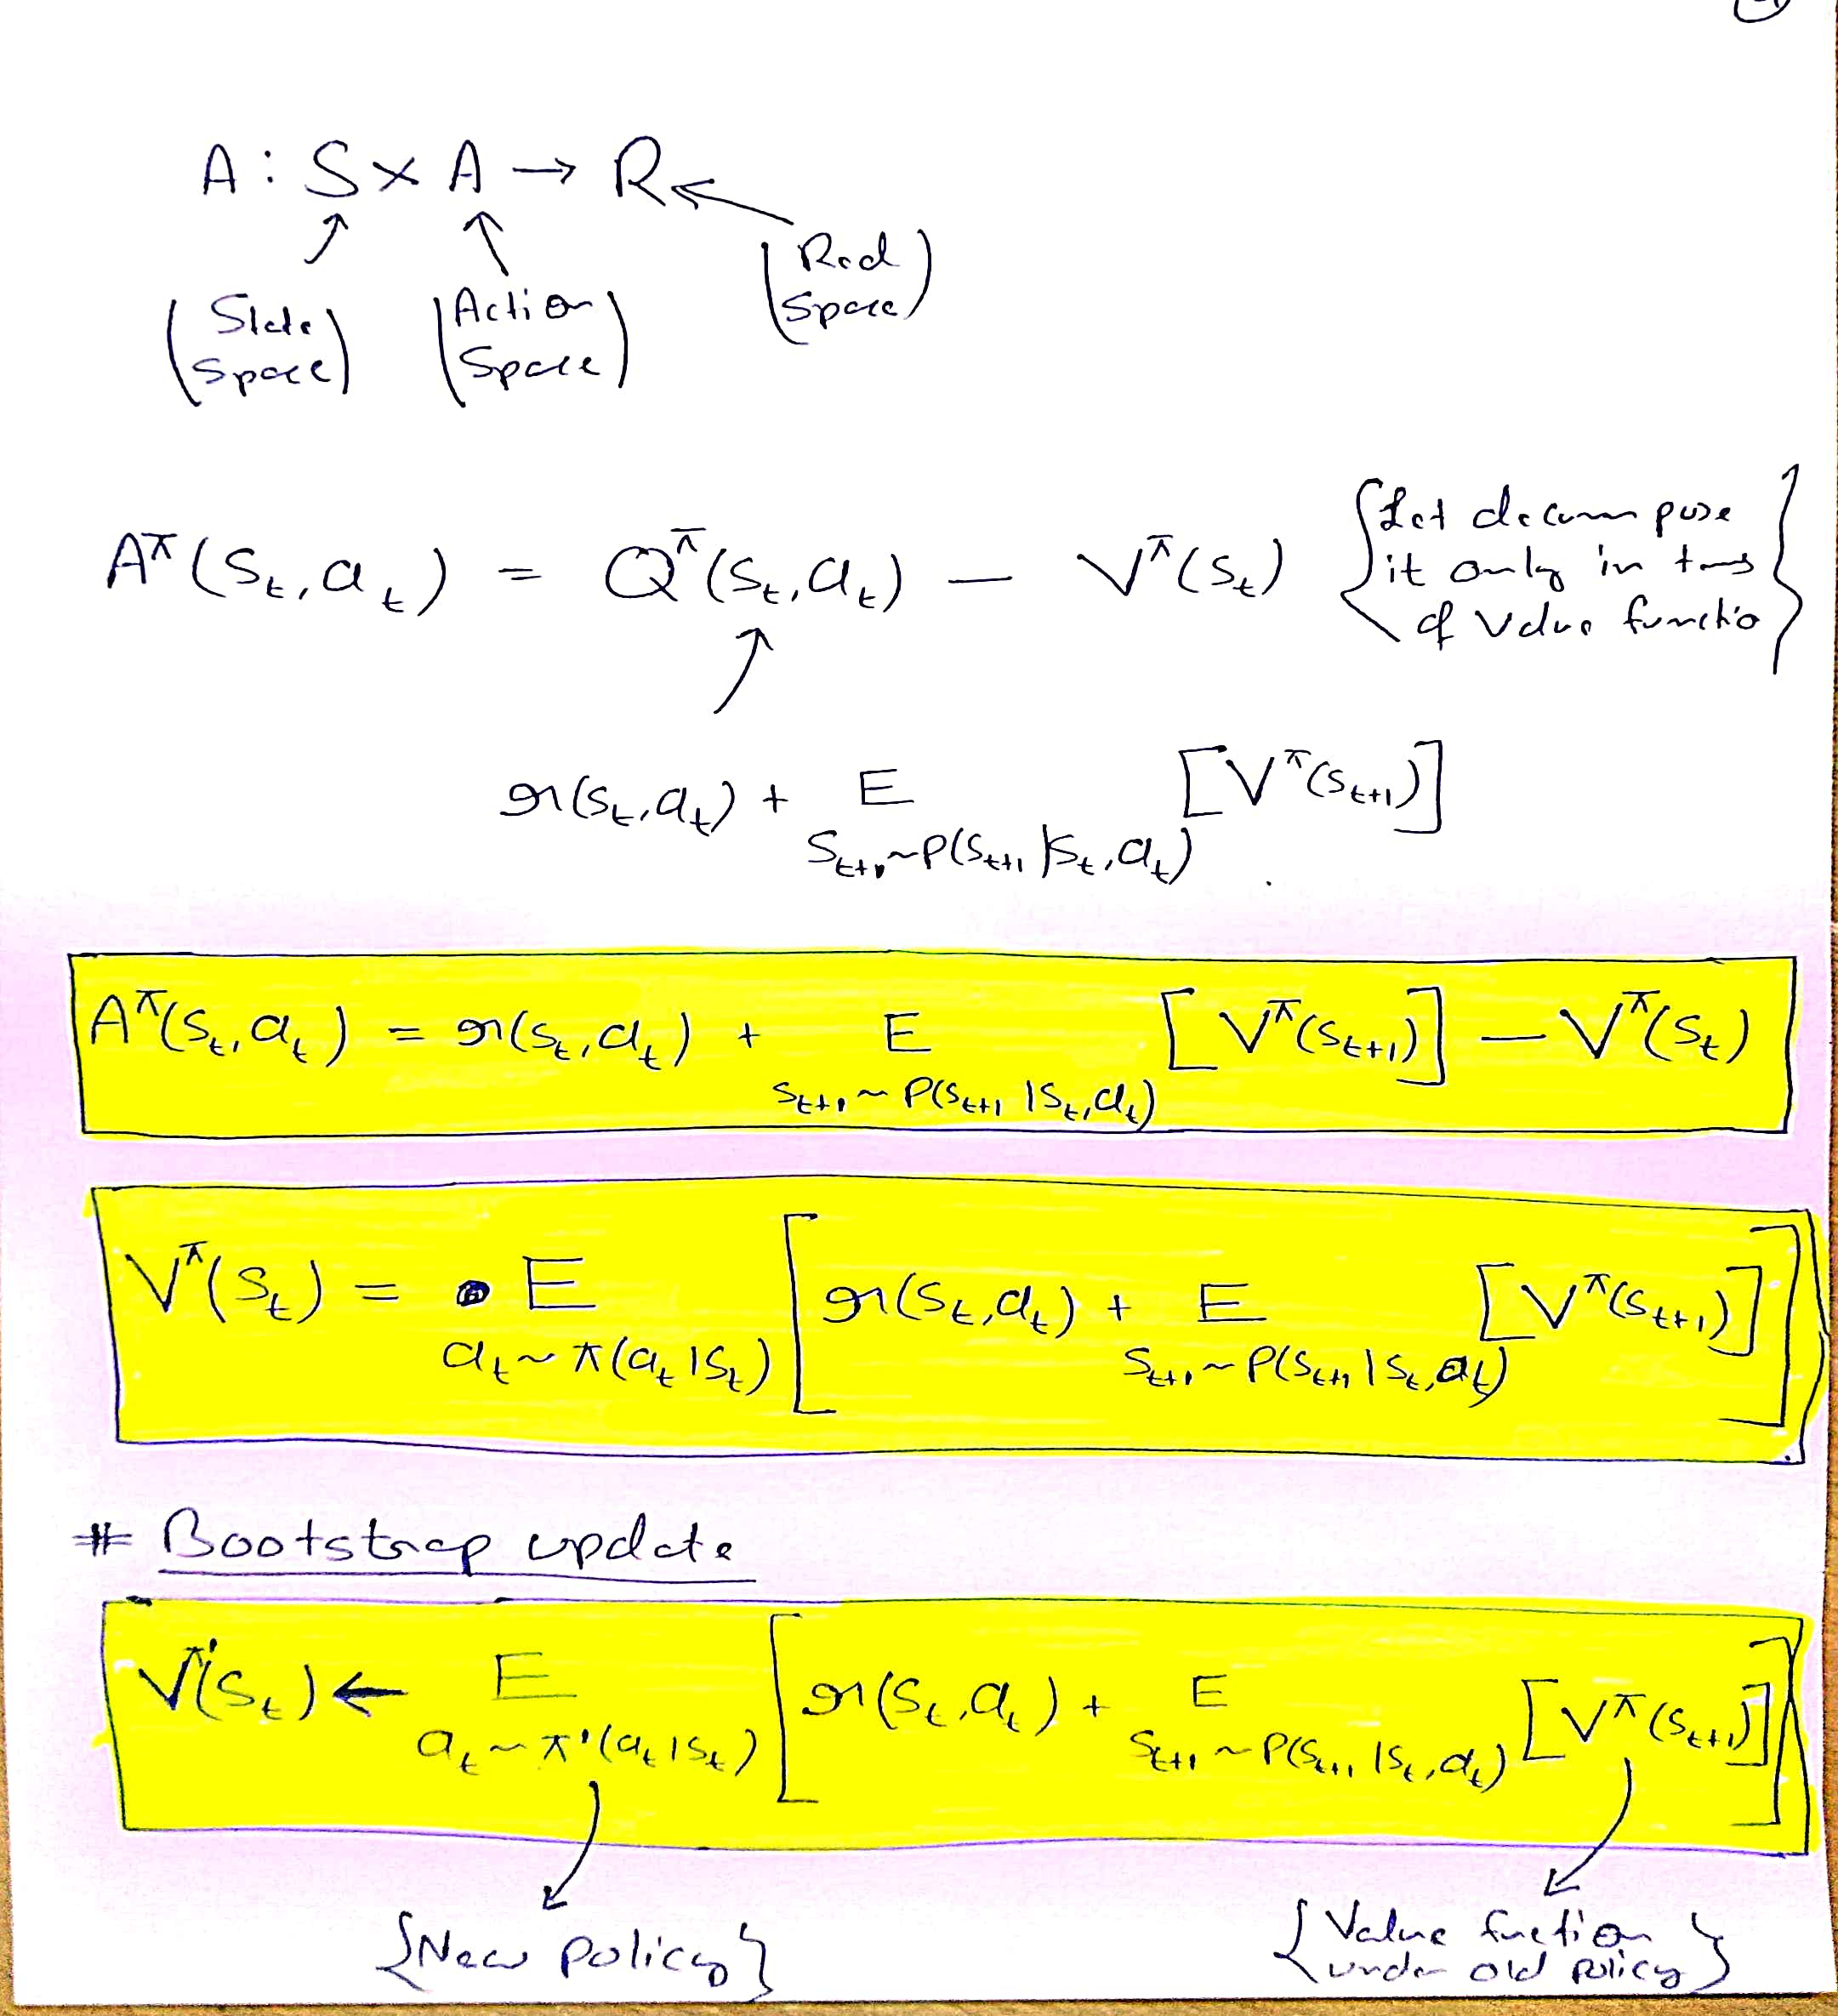 A : S × A → R
(State Space) (Action Space) (Real Space)
A^π(s_t, a_t) = Q^π(s_t, a_t) − V^π(s_t) {Let decompose it only in tms of value functio}
r(s_t, a_t) + E_{s_{t+1} ~ P(s_{t+1} | s_t, a_t)} [V^π(s_{t+1})]
A^π(s_t, a_t) = r(s_t, a_t) + E_{s_{t+1} ~ P(s_{t+1} | s_t, a_t)} [V^π(s_{t+1})] − V^π(s_t)
V^π(s_t) = E_{a_t ~ π(a_t | s_t)} [r(s_t, a_t) + E_{s_{t+1} ~ P(s_{t+1} | s_t, a_t)} [V^π(s_{t+1})]]
# Bootstrap update
V^π'(s_t) ← E_{a_t ~ π'(a_t | s_t)} [r(s_t, a_t) + E_{s_{t+1} ~ P(s_{t+1} | s_t, a_t)} [V^π(s_{t+1})]]
{New policy} {Value fuction under old policy}